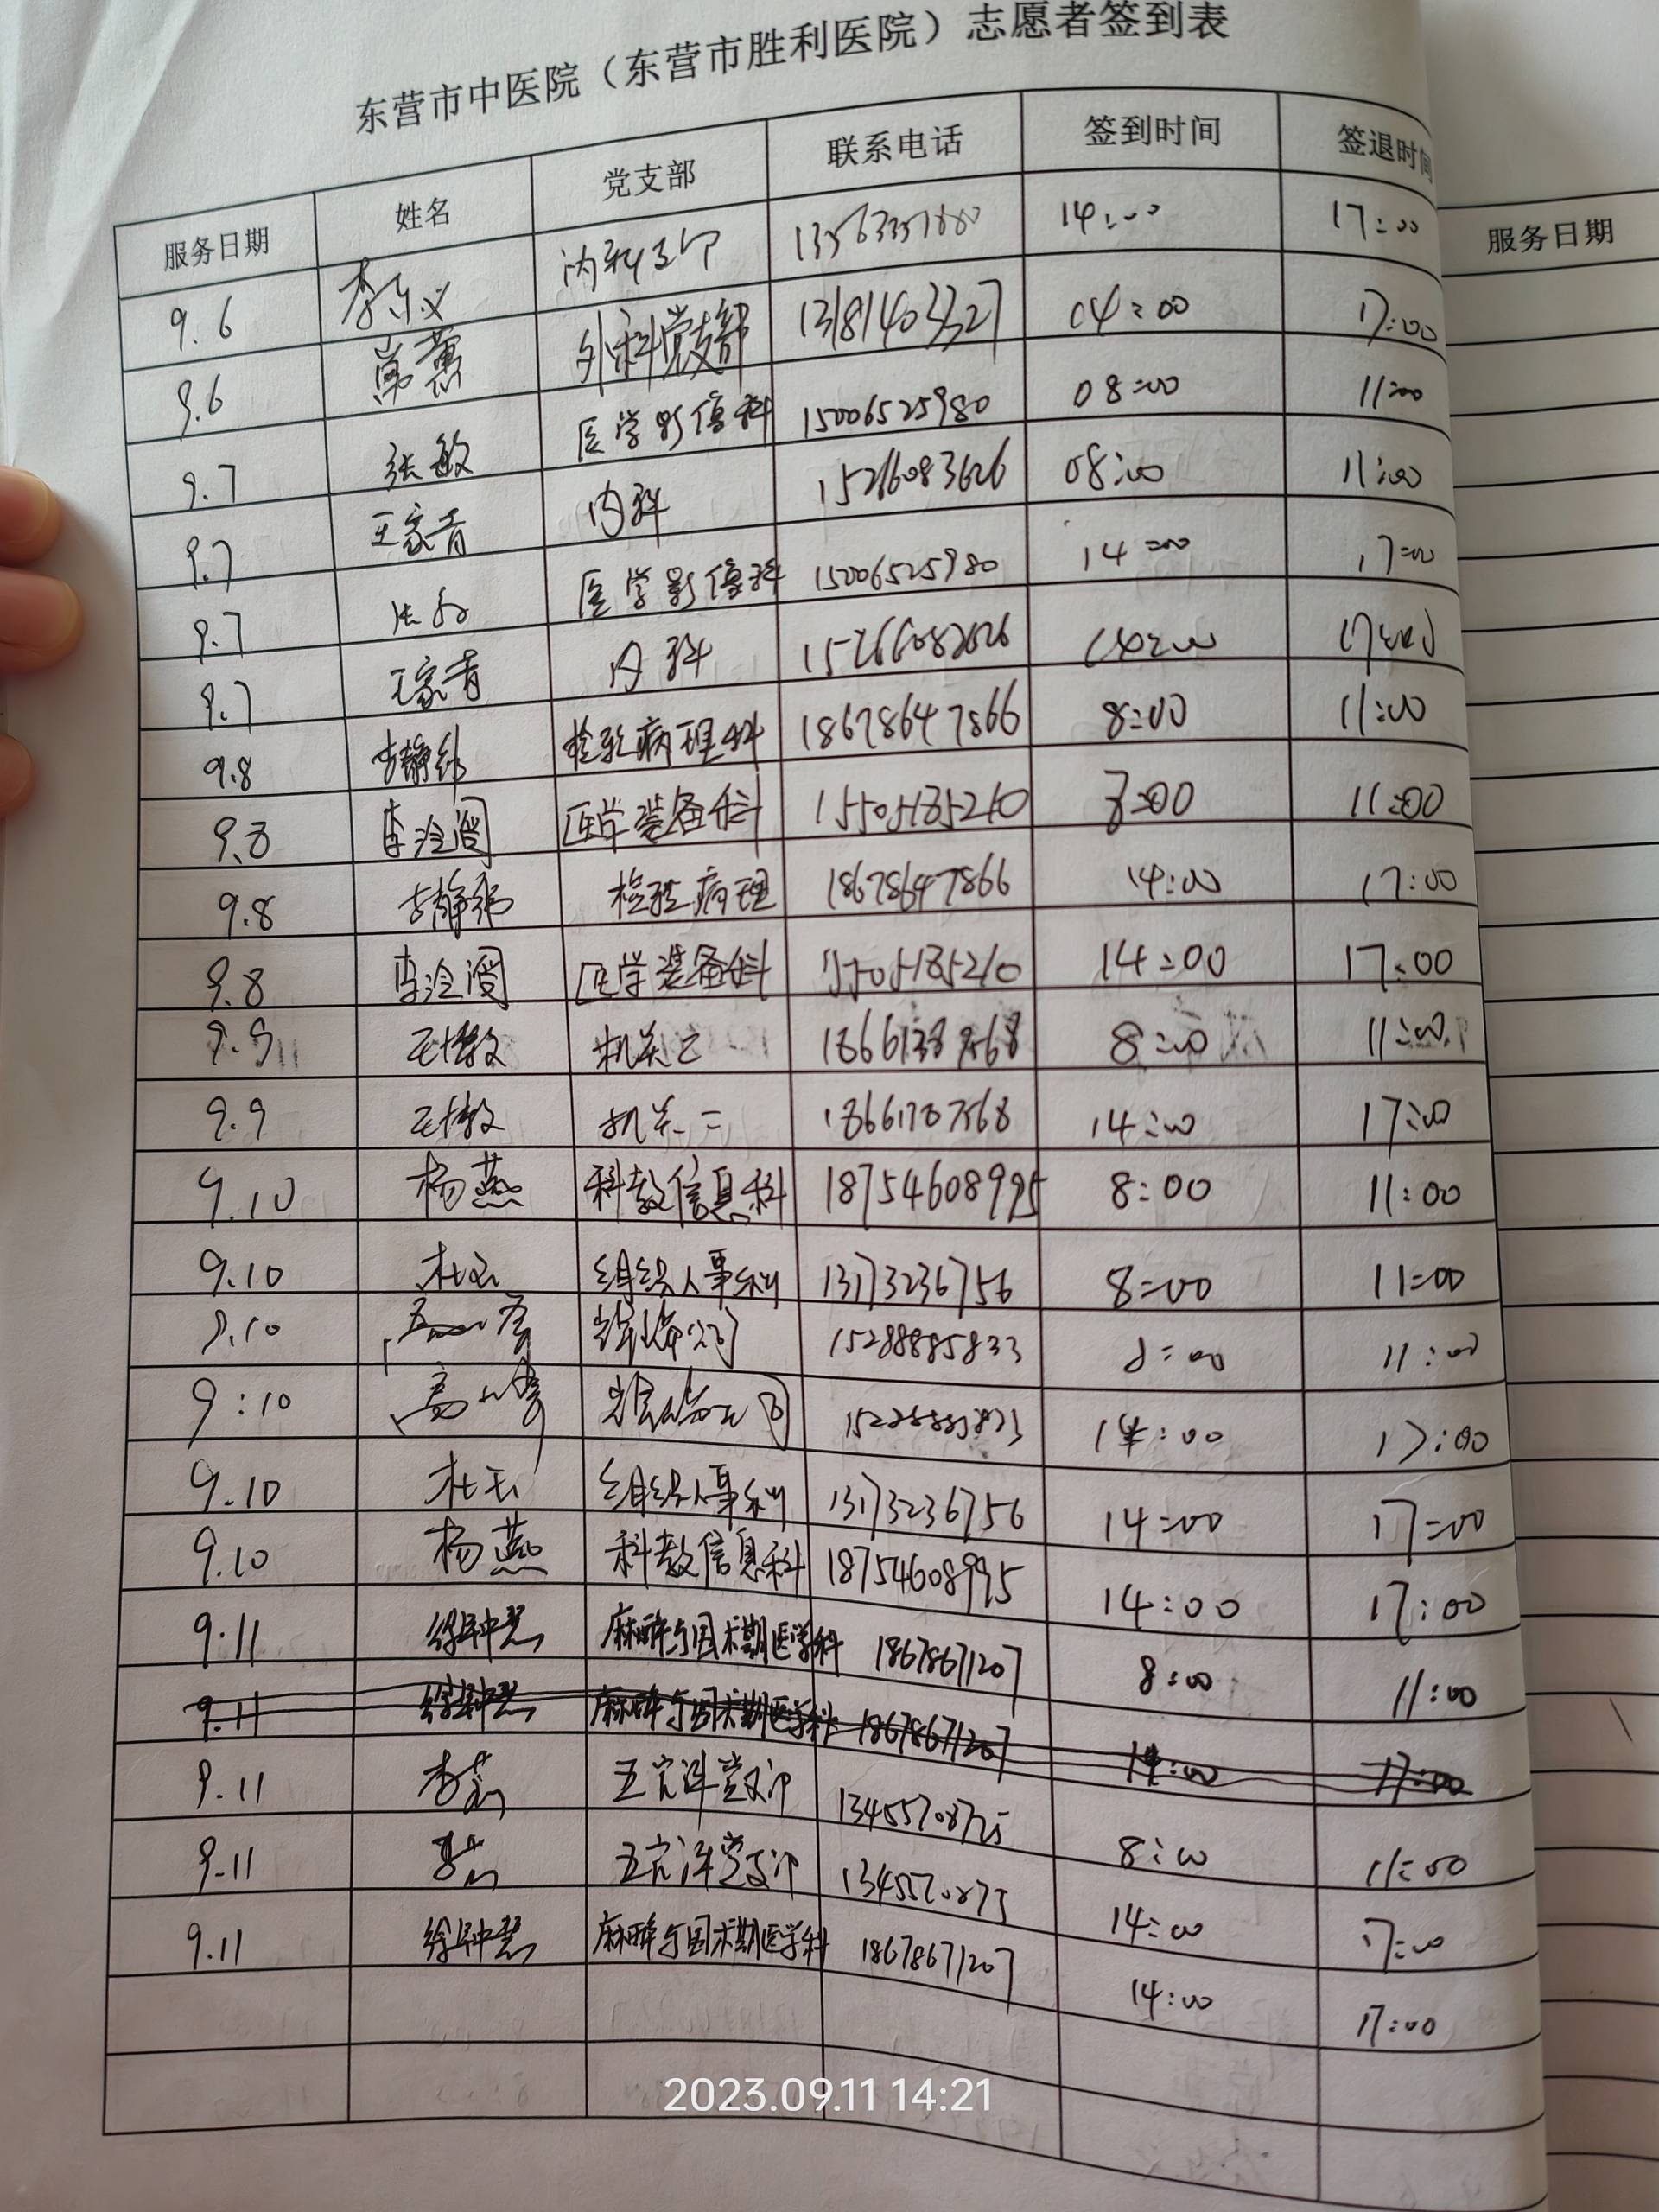 东营市中医院（东营市胜利医院）志愿者签到表
服务日期 姓名 党支部 联系电话 签到时间 签退时间
服务日期
9.6 14:00 17:00
9.6 外科党支部 13181403327 14:00 17:00
9.7 张敏 医学影像科 15006525980 08:00 11:00
9.7 王家青 内科 08:00 11:00
9.7 医学影像科 15006525980 14:00 17:00
9.7 王家青 内科 14:00 17:00
9.8 检验病理科 18678647866 8:00 11:00
9.8 医学装备科 15505185210 8:00 11:00
9.8 检验病理 18678647866 14:00 17:00
9.8 医学装备科 15505185210 14:00 17:00
9.9 机关二 8:00 11:00
9.9 机关二 14:00 17:00
9.10 杨燕 科教信息科 18754608995 8:00 11:00
9.10 杜玉 组织人事科 13173236756 8:00 11:00
9.10 15288885833 8:00 11:00
9:10 高峰 14:00 17:00
9.10 杜玉 组织人事科 13173236756 14:00 17:00
9.10 杨燕 科教信息科 18754608995 14:00 17:00
9.11 徐钟慧 麻醉与围术期医学科 18678671207 8:00 11:00
9.11 徐钟慧 麻醉与围术期医学科 18678671207 14:00 17:00
9.11 五官洋党支部 8:00 11:00
9.11 五官洋党支部 14:00 17:00
9.11 徐钟慧 麻醉与围术期医学科 18678671207 14:00 17:00
2023.09.11 14:21